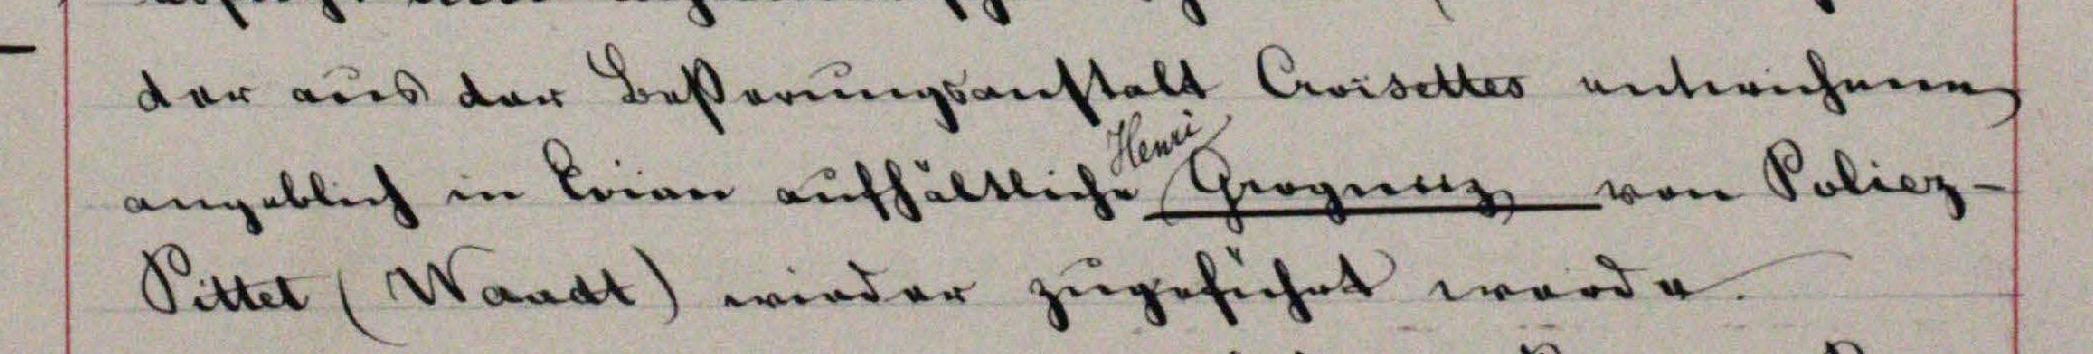 der aus der Beßerungsanstalt Croisettes entwichene,
angeblich in Evian aufhältliche Henri Grognuz von Poliez-
Pittet (Waadt) wieder zugeführt werde.